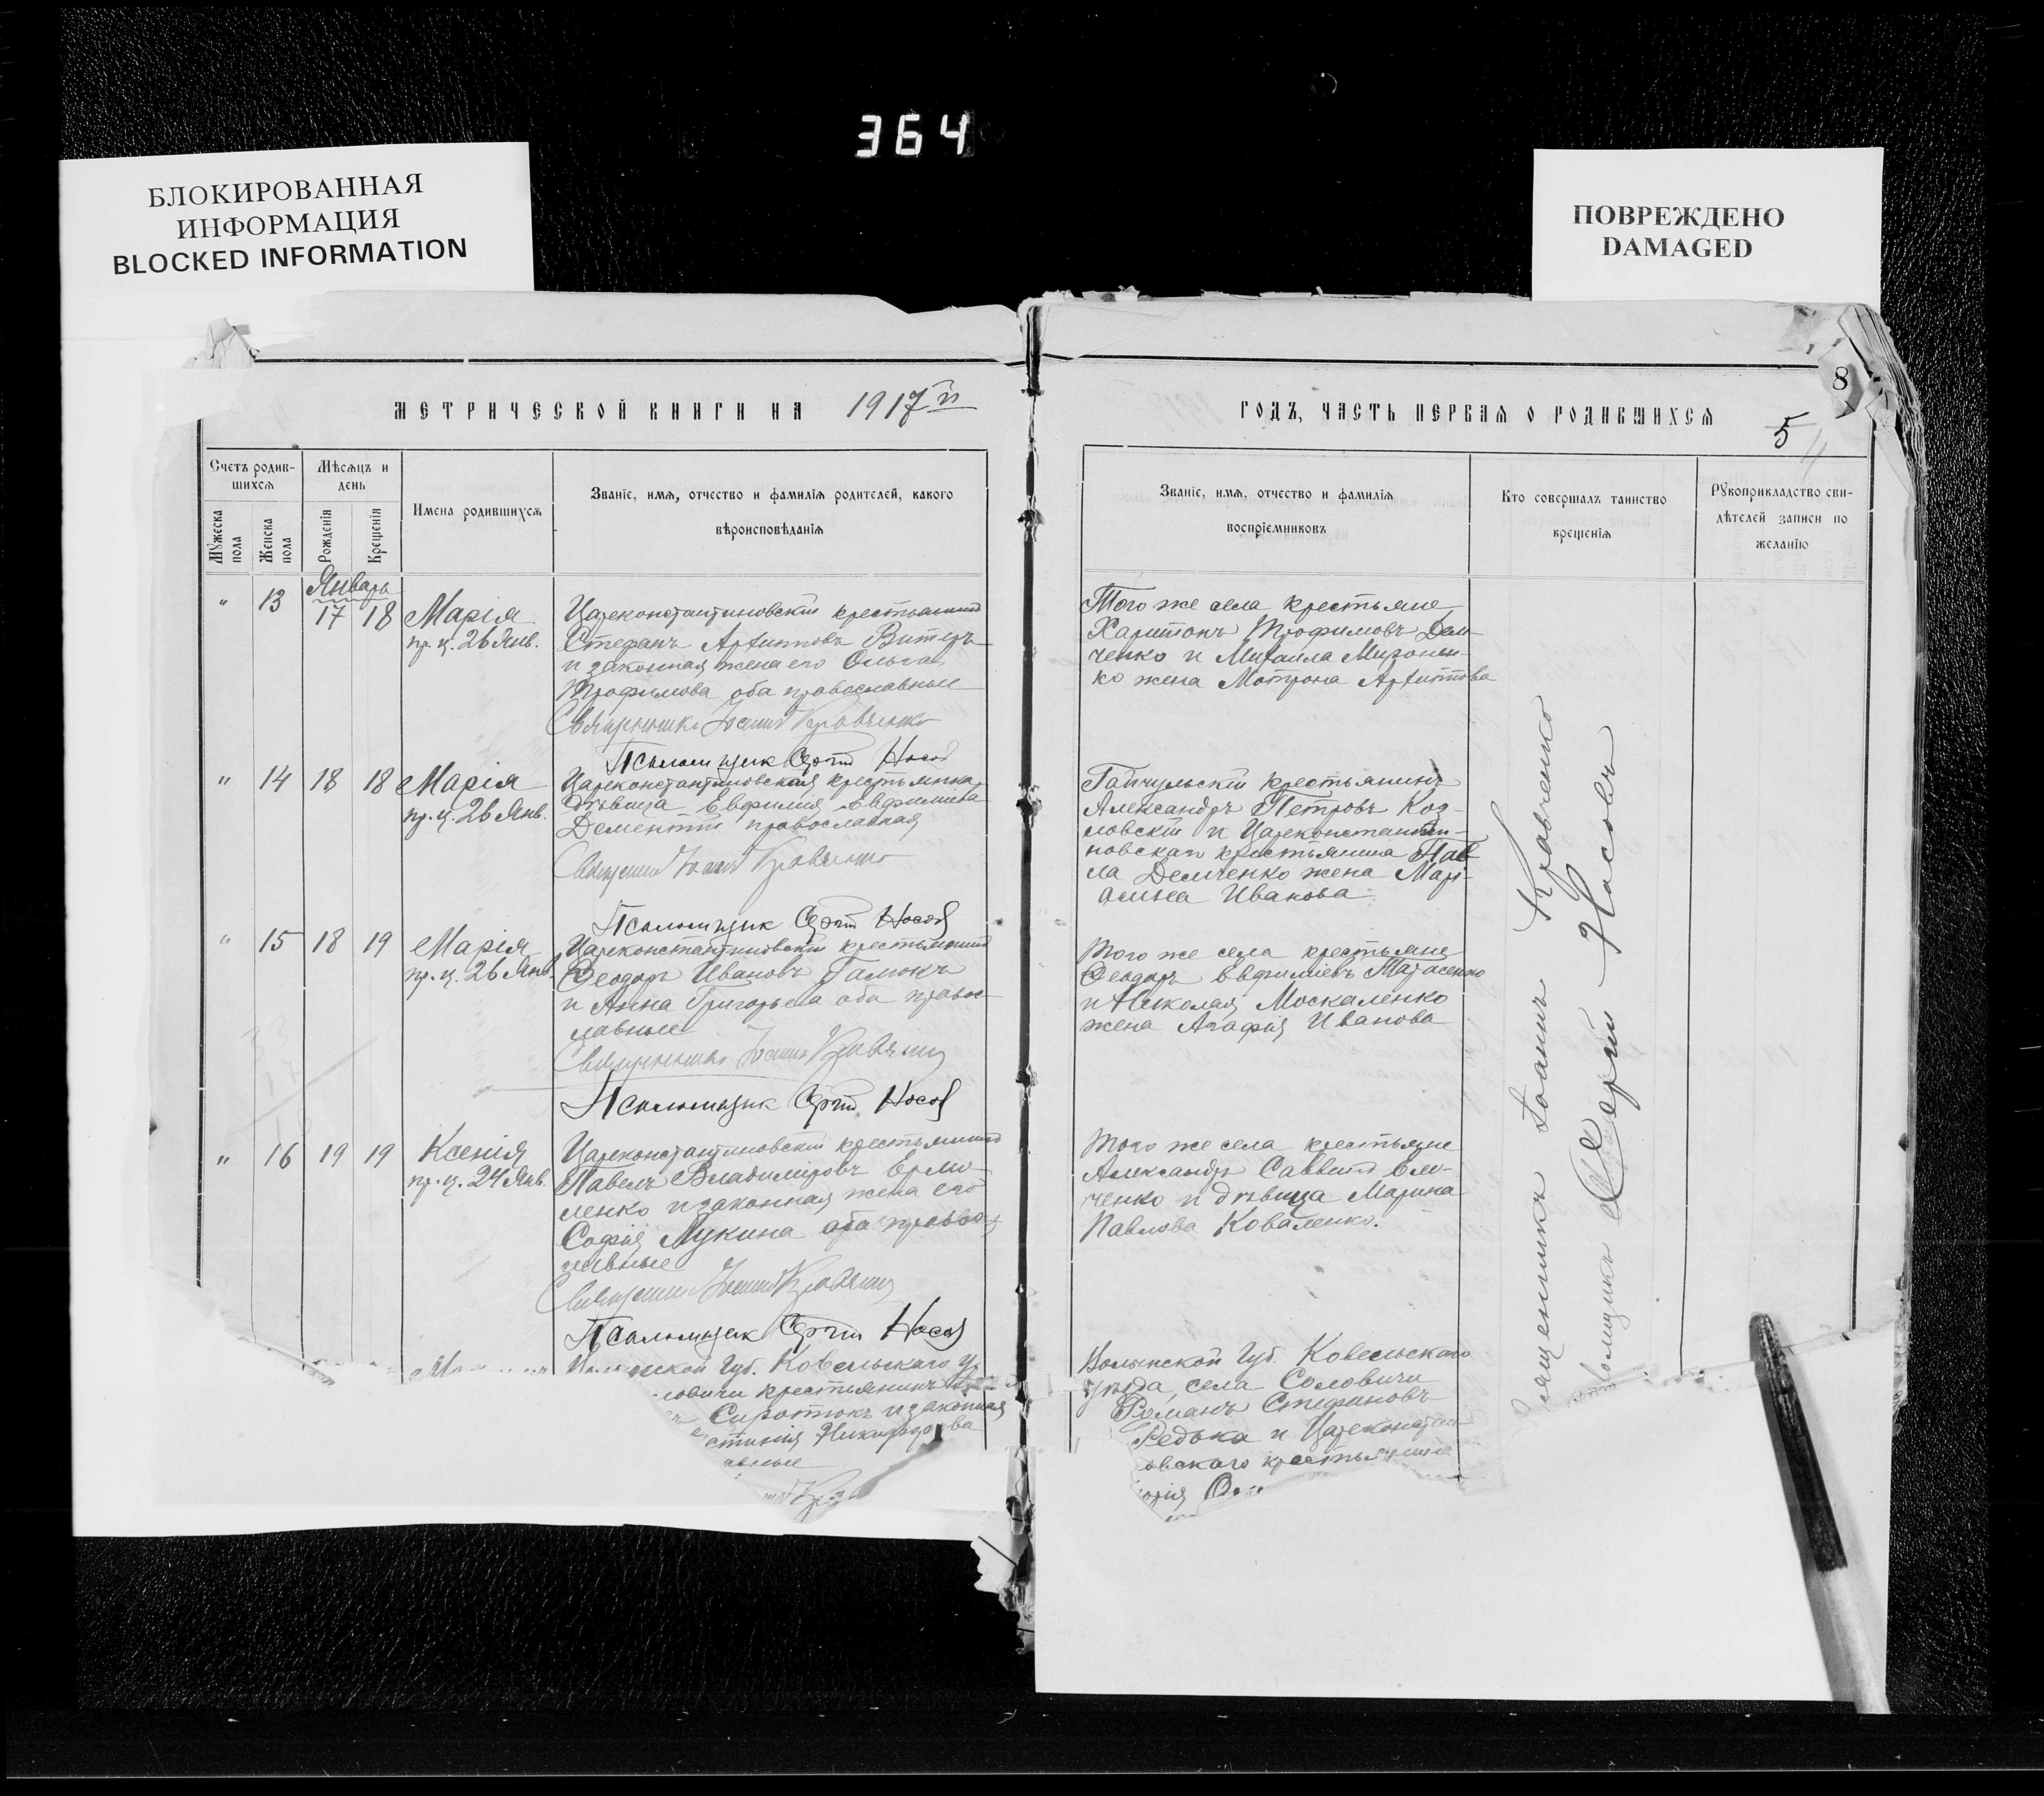 364
БЛОКИРОВАННАЯ
ИНФОРМАЦИЯ
BLOCKED INFORMATION
ПОВРЕЖДЕНО
DAMAGED
8
МЕТРИЧЕСКОЙ КНИГИ НА 1917й
ГОДЪ, ЧАСТЬ ПЕРВАЯ О РОДИВШИХСЯ
5
Счетъ родив-
шихся
Мѣсяцъ и
день
Мужеска
пола
Женска
пола
Рожденія
Крещенія
Имена родившихся
Званіе, имя, отчество и фамилія родителей, какого
вѣроисповѣданія
Званіе, имя, отчество и фамилія
воспріемниковъ
Кто совершалъ таинство
крещенія
Рукоприкладство сви-
дѣтелей записи по
желанію
Январь
" 13 17 18 Марія
пр. ц. 26 Янв.
Цареконстантиновскій крестьянинъ
Стефанъ Архиповъ Витеръ
и законная жена его Ольга
Трофимова оба православные
Священникъ Іоаннъ Кравченко
Псаломщик Сергій Носов
Того же села крестьяне
Харитонъ Трофимовъ Дем-
ченко и Михаила Миронен-
ко жена Мотрона Архиппова
" 14 18 18 Марія
пр. ц. 26 Янв.
Цареконстантиновская крестьянка
дѣвица Евфимія Евфиміева
Дементій православная
Священник Іоаннъ Кравченко
Псаломщик Сергій Носов
Гайчульскій крестьянинъ
Александръ Петровъ Коз-
ловскій и Цареконстанти-
новскаго крестьянина Пав-
ла Демченко жена Мари-
Иванова
" 15 18 19 Марія
пр. ц. 26 Янв.
Цареконстантиновскій крестьянинъ
Ѳеодоръ Ивановъ Галюкъ
и Анна Григорьева оба правос-
лавные
Священникъ Іоаннъ Кравченко
Псаломщик Сергій Носов
Того же села крестьяне
Ѳеодоръ Евфиміевъ Тарасенко
и Николая Москаленко
жена Агафія Иванова
" 16 19 19 Ксенія
пр. ц. 24 Янв.
Цареконстантиновскій крестьянинъ
Павелъ Владиміровъ Ермо-
ленко и законная жена его
Софія Лукина оба правос-
лавные
Священник Іоаннъ Кравченко
Псаломщик Сергій Носов
Того же села крестьяне
Александръ Саввинъ Ели-
ченко и дѣвица Марина
Павлова Коваленко.
Губ. Ковельскаго у.
ловичи крестьянинъ
Сиротюкъ и законная
стинія Никифорова
авные
Волынской Губ. Ковельскаго
уѣзда, села Соловичи
Романъ Стефановъ
Редька и Цареконстан-
овскаго крестьянина
Священникъ Іоаннъ Кравченко
Псаломщикъ Сергій Носовъ